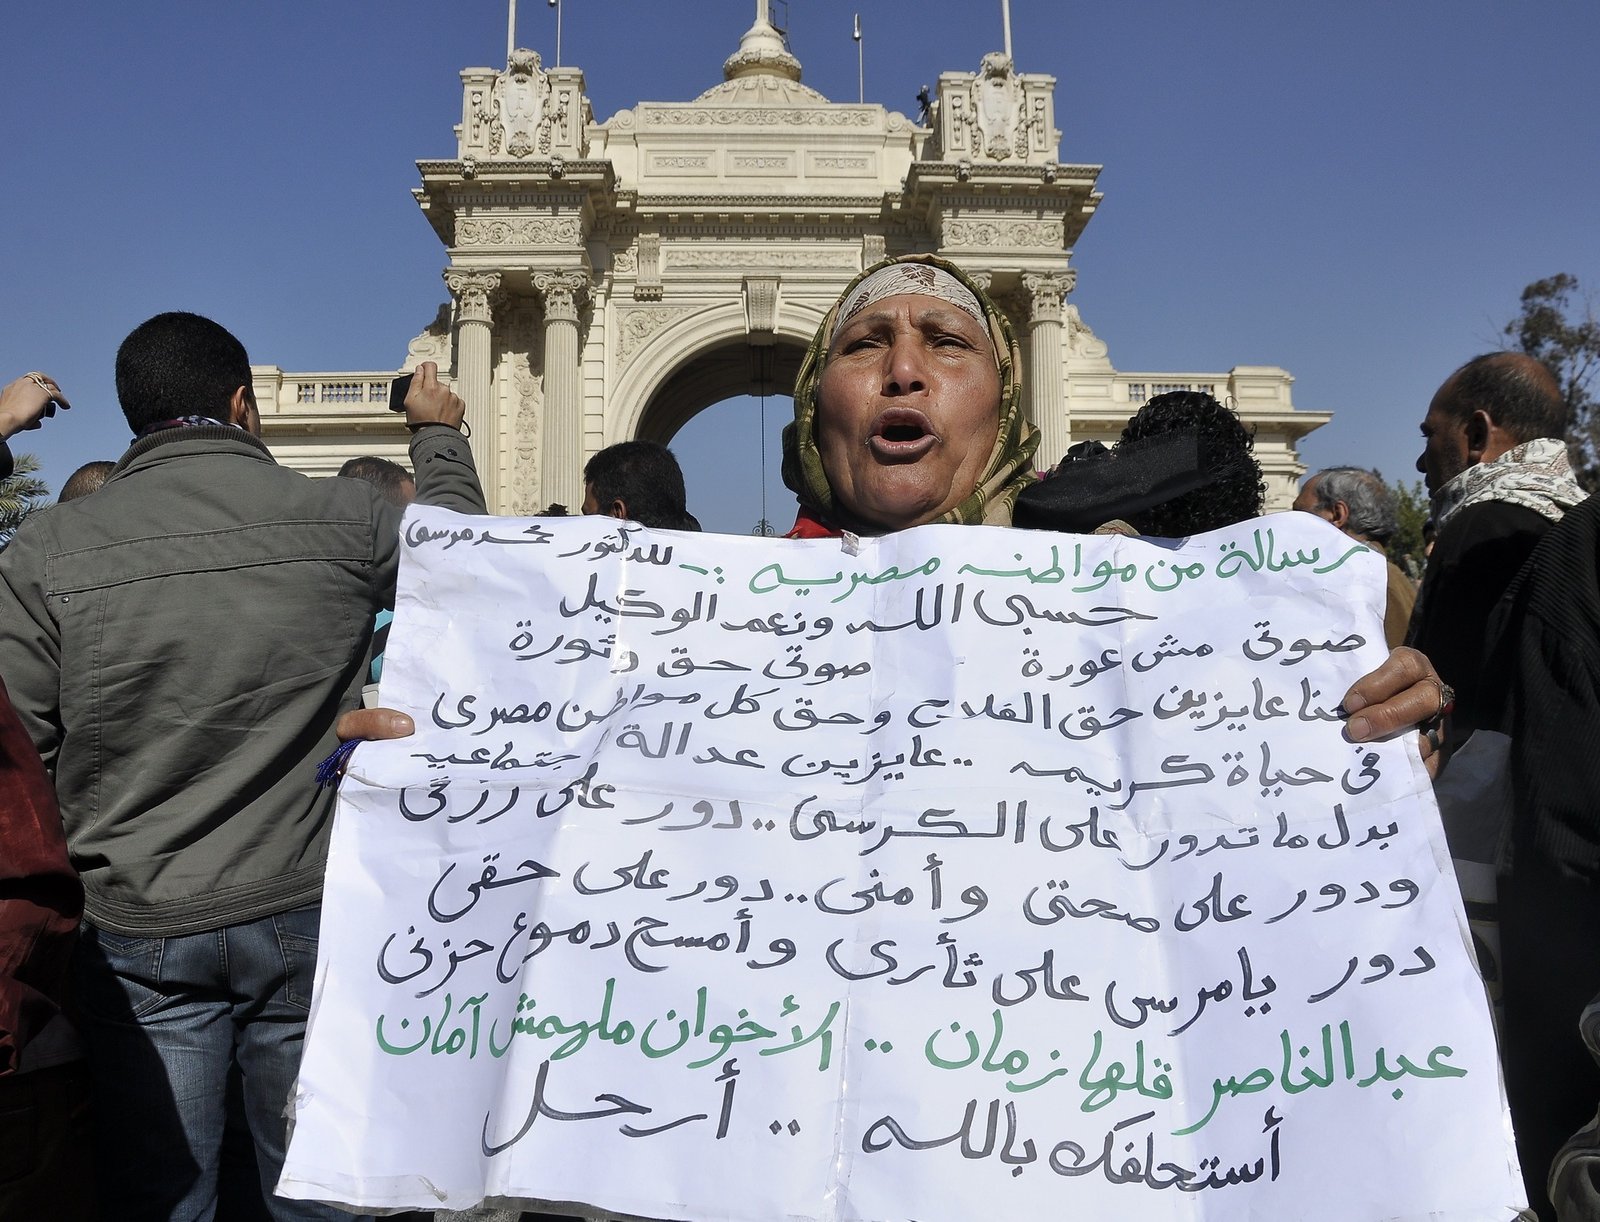 رسالة من مواطنه مصريه :- للدكتور محمد مرسى
حسبى الله ونعم الوكيل
صوتى مش عورة - صوتى حق وثورة
حنا عايزين حق الفلاح وحق كل مواطن مصرى
فى حياة كريمه .. عايزين عدالة جتماعيه
بدل ما تدور على الكرسى .. دور على رزقى
ودور على صحتى وأمنى .. دور على حقى
دور يا مرسى على ثأرى وأمسح دموع حزنى
عبد الناصر قلها زمان .. الأخوان ملهمش آمان
أستحلفك بالله .. أرحل